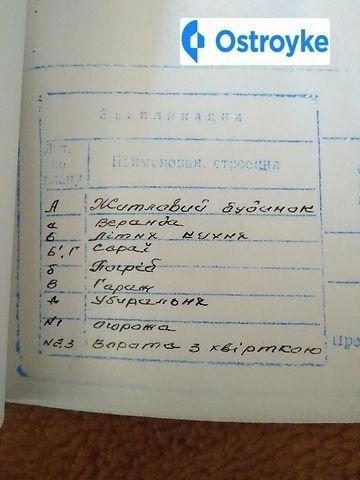 Ostroyke
Экспликация
Лит. по плану Наименован. строения
А Житловий будинок
а Веранда
Б Літня кухня
Б', Г Сарай
б Погріб
В Гараж
Убиральня
N1 огорожа
N2,3 Ворота з хвірткою